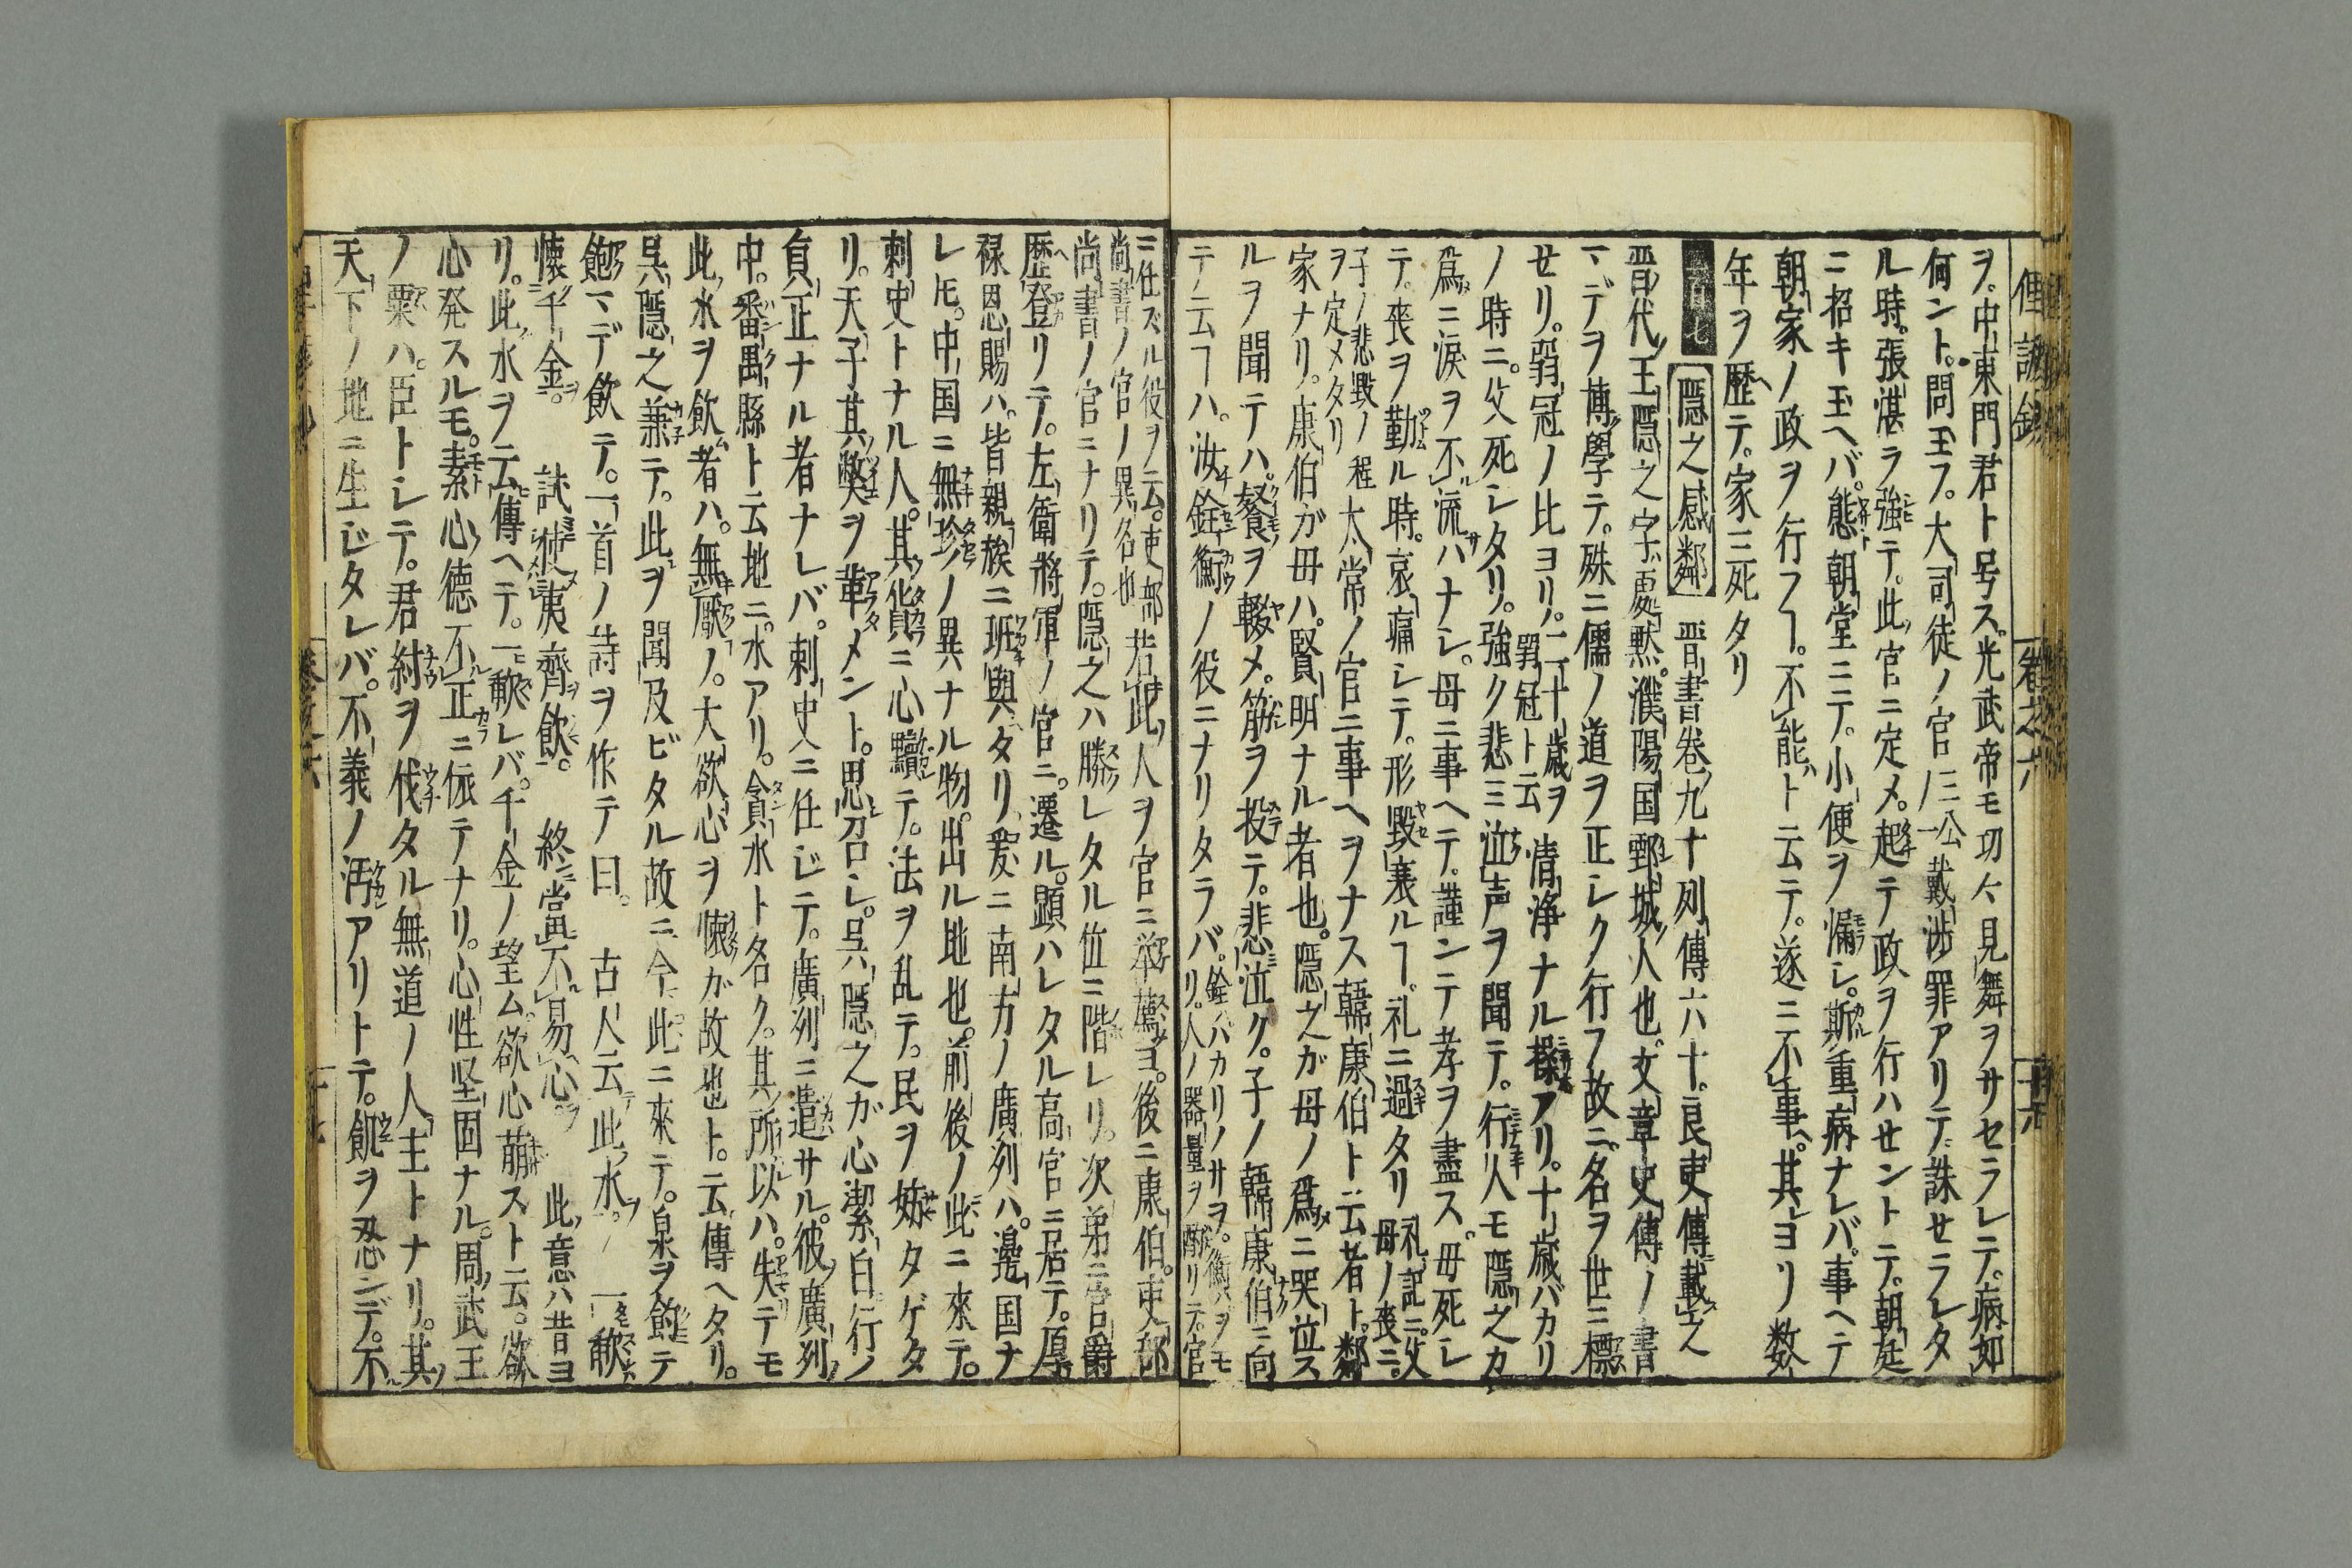 ヲ。中東門君ト号ス。光武帝モ切々見舞ヲサセラレテ。病如
何ント。問玉フ。大司徒ノ官三公戴渉罪アリテ誅セラレタ
ル時。張湛ヲ強テ。此官ニ定メ。起テ政ヲ行ハセントテ。朝廷
ニ招キ玉ヘバ。態朝堂ニテ。小便ヲ漏シ。斯重病ナレバ。事ヘテ
朝家ノ政ヲ行フヿ。不能ト云テ。遂ニ不事。其ヨリ数
年ヲ歴テ。家ニ死タリ
隠之感鄰 晋書巻九十列傳六十。良吏傳載之
晋代王隠之字處黙。濮陽国鄄城人也。文章史傳ノ書
マデヲ博學テ。殊ニ儒ノ道ヲ正シク行フ故ニ。名ヲ世ニ標
セリ。弱冠ノ比ヨリ。二十歳ヲ弱冠ト云清浄ナル操アリ。十歳バカリ
ノ時ニ。父死シタリ。強ク悲ミ泣声ヲ聞テ。行人モ隠之カ
爲ニ涙ヲ不流ハナシ。母ニ事ヘテ。謹ンテ孝ヲ盡ス。母死シ
テ。喪ヲ勤ル時。哀痛シテ。形毀衰ルヿ。礼ニ過タリ礼記ニ。父母ノ喪ニ。
子ノ悲毀ノ程ヲ定メタリ太常ノ官ニ事ヘヲナス韓康伯ト云者ト。鄰
家ナリ。康伯ガ母ハ。賢明ナル者也。隠之ガ母ノ爲ニ哭泣ス
ルヲ聞テハ。餐ヲ輟メ。筯ヲ投テ。悲泣ク。子ノ韓康伯ニ向
テ云ヿハ。汝銓衡ノ役ニナリタラバ。銓ハカリノサヲ。衡ハヲモリ。人ノ器量ヲ酙リテ。官
ニ仕スル役ヲ云。吏部尚書ノ官ノ異名也若此人ヲ官ニ挙薦ヨ。後ニ康伯。吏部
尚書ノ官ニナリテ。隠之ハ勝レタル位ニ階レリ。次第ニ官爵
歴登リテ。左衛将軍ノ官ニ。遷ル。顕ハレタル高官ニ居テ。厚
禄恩賜ハ。皆親族ニ班與タリ。爰ニ南方ノ廣列ハ。邊国ナ
レモ。中国ニ無珍ノ異ナル物。出ル地也。前後ノ此ニ來テ。
刺史トナル人。其貨ニ心黷テ。法ヲ乱テ。民ヲ妨タゲタ
リ。天子其弊ヲ革メント。思召シ。呉隠之ガ心潔白行ノ
貞正ナル者ナレバ。刺史ニ仕ジテ。廣列ニ遣サル。彼廣列
中。番禺縣ト云地ニ。水アリ。貪水ト名ク。其所以ハ。失テモ
此水ヲ飲者ハ。無厭ノ。大欲心ヲ懐ガ故也ト。云傳ヘタリ。
呉隠之兼テ。此ヲ聞及ビタル故ニ。今此ニ來テ。泉ヲ酌テ
飽マデ飲テ。一首ノ詩ヲ作テ曰。 古人云此水。 一歃
懐千金。 試使夷齊飲。 終當不易心。 此意ハ昔ヨ
リ。此水ヲ云傳ヘテ。一歃レバ。千金ノ望ム。欲心萠スト云。欲
心発スルモ。素心德不正ニ依テナリ。心性堅固ナル。周武王
ノ粟ハ。臣トシテ。君紂ヲ伐タル無道ノ人主トナリ。其
天下ノ地ニ生ジタレバ。不義ノ汚アリトテ。飢ヲ忍ンデ。不
俚諺鈔 巻之六 十六